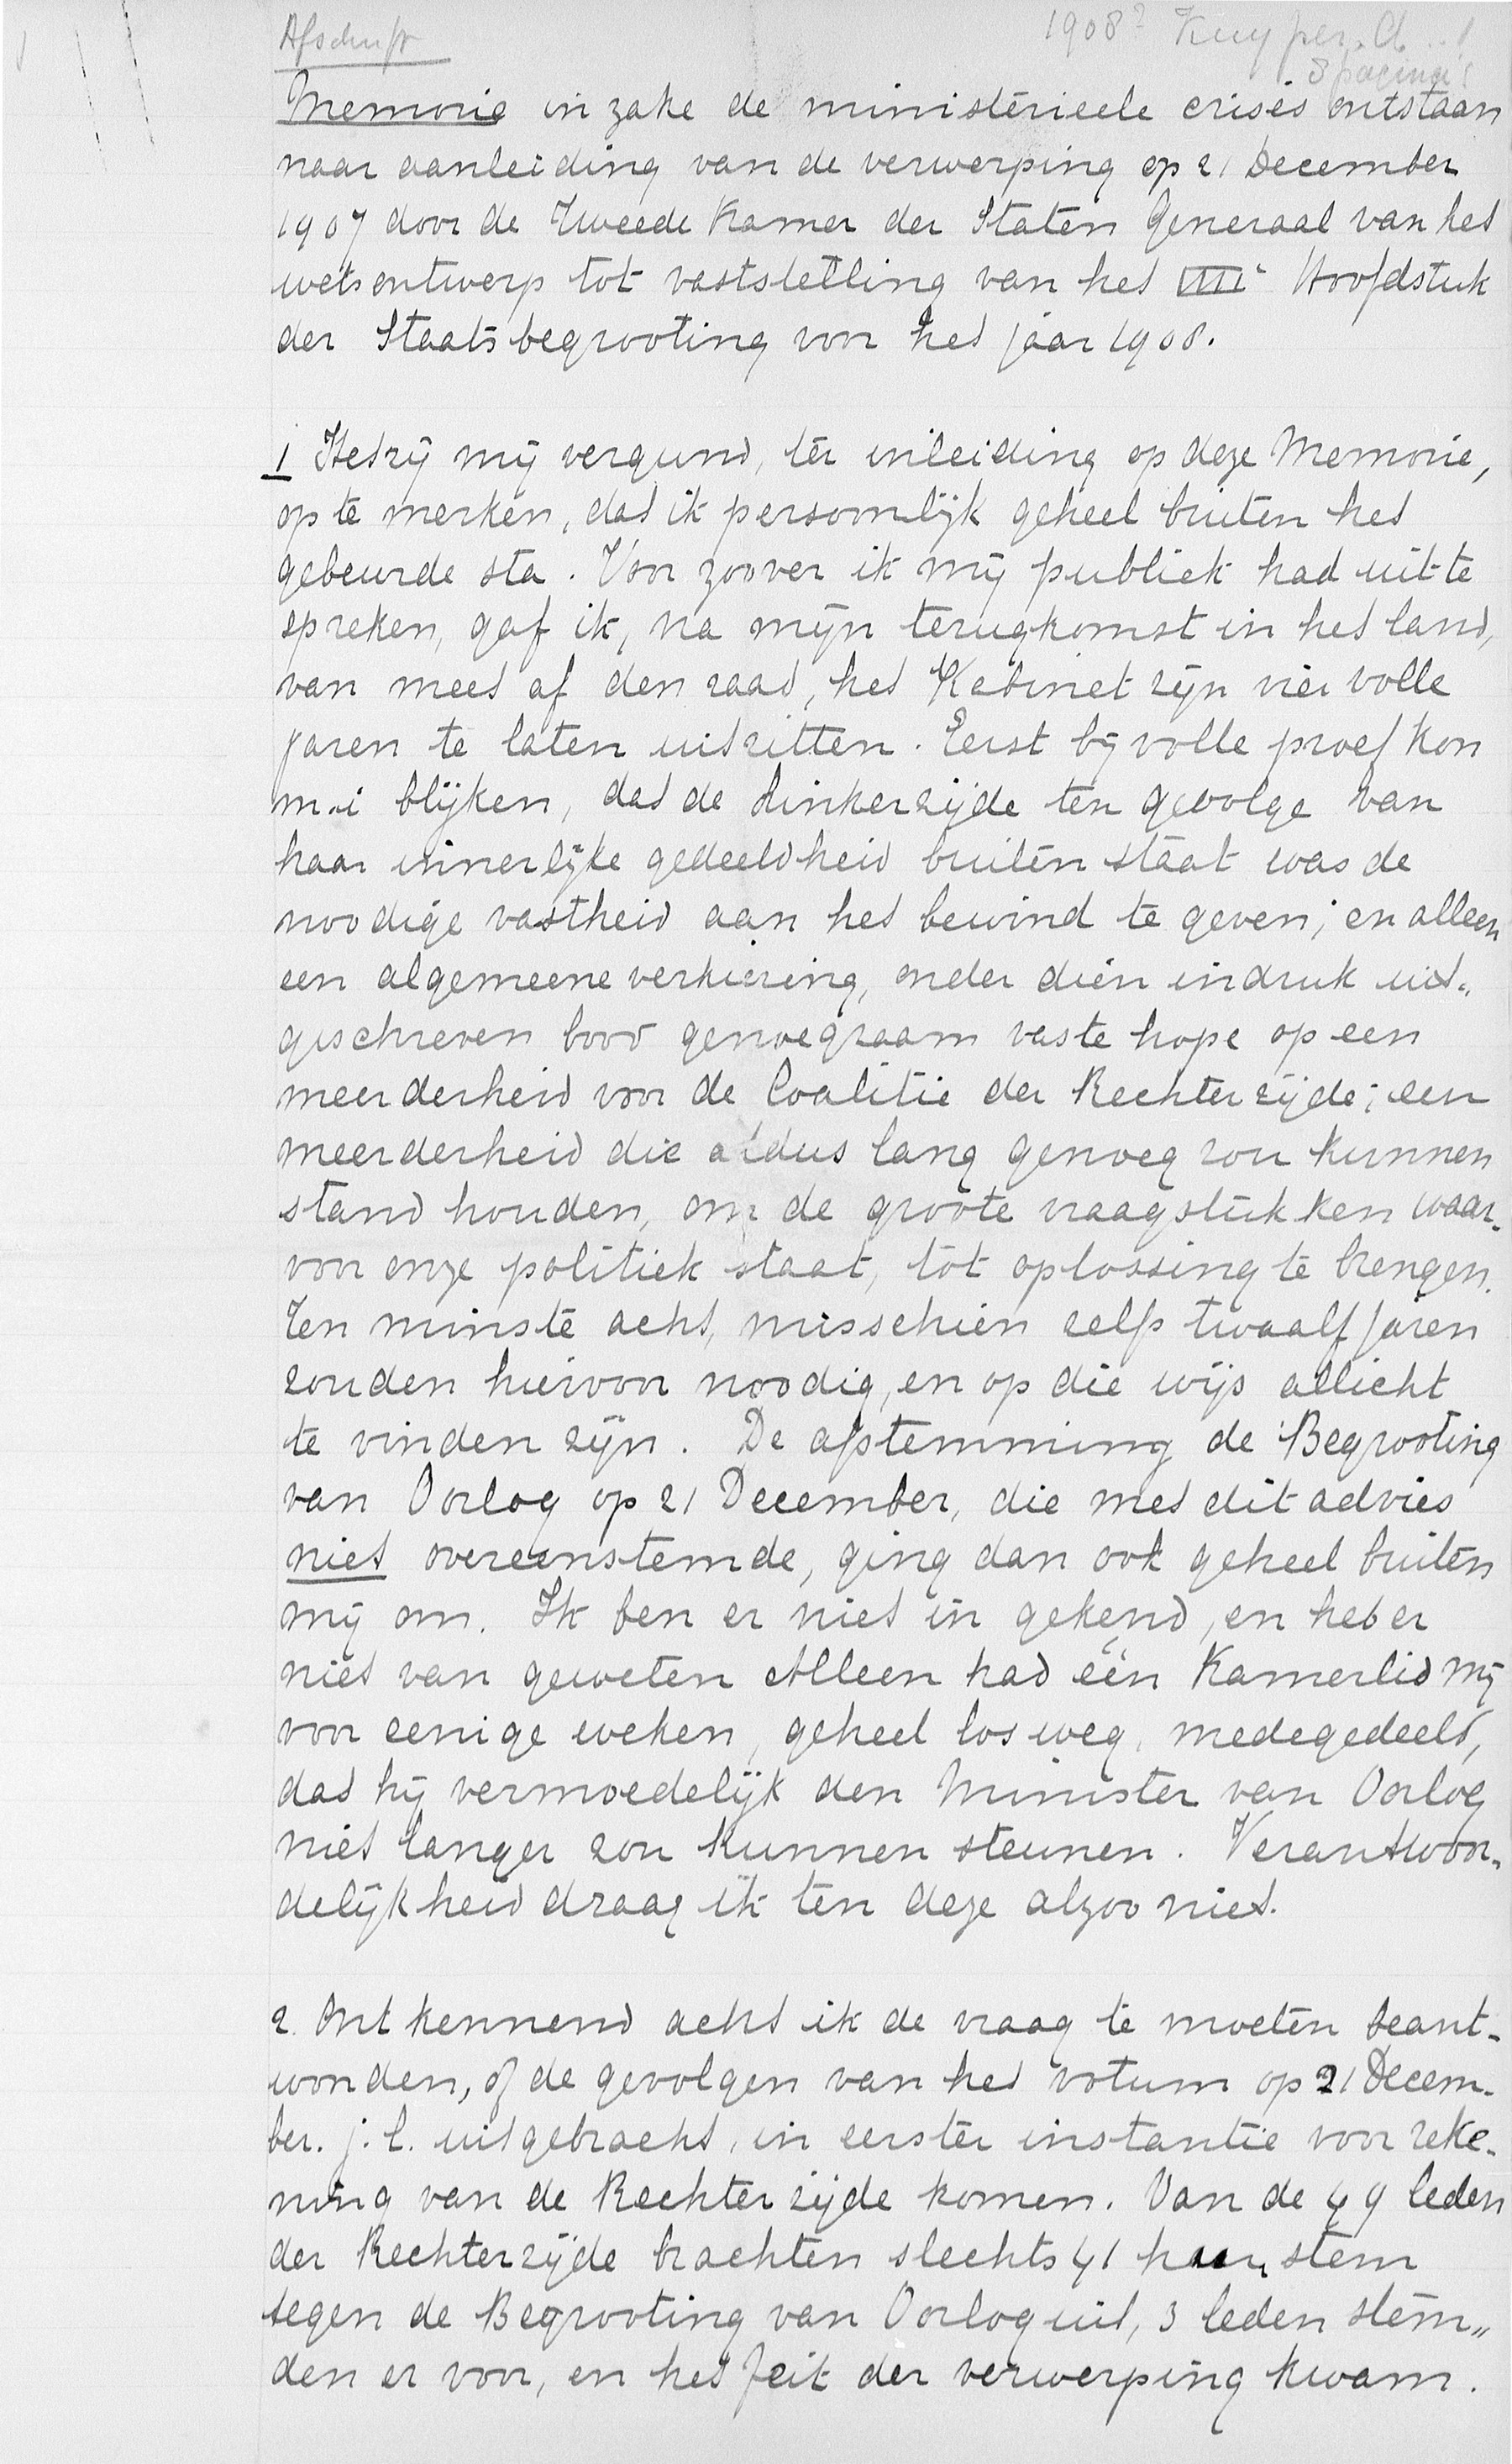 Afschrift
1908? Kuyper. A
Memorie in zake de ministerieele crisis ontstaan
naar aanleiding van de verwerping op 21 December
1907 door de Tweede Kamer der Staten Generaal van het
wetsontwerp tot vaststelling van het VIIIe Hoofdstuk
der Staatsbegrooting voor het jaar 1908.
1 Het zij mij vergund, ter inleiding op deze Memorie,
op te merken, dat ik persoonlijk geheel buiten het
gebeurde sta. Voor zoover ik mij publiek had uit te
spreken, gaf ik, na mijn terugkomst in het land,
van meet af den raad, het Kabinet zijn vier volle
jaren te laten uitzitten. Eerst bij volle proef kon
m.i blijken, dat de Linkerzijde ten gevolge van
haar innerlijke gedeeldheid buiten staat was de
noodige vastheid aan het bewind te geven; en alleen
een algemeene verkiezing, onder dien indruk uit-
geschreven bood genoegzaam vaste hope op een
meerderheid voor de Coalitie der Rechterzijde; een
meerderheid die aldus lang genoeg zou kunnen
stand houden, om de groote vraagstukken waar-
voor onze politiek staat, tot oplossing te brengen.
Ten minste acht, misschien zelfs twaalf jaren
zouden hiervoor noodig, en op die wijs allicht
te vinden zijn. De afstemming de Begrooting
van Oorlog op 21 December, die met dit advies
niet overeenstemde, ging dan ook geheel buiten
mij om. Ik ben er niet in gekend, en heb er
niet van geweten Alleen had één Kamerlid mij
voor eenige weken, geheel losweg, medegedeeld,
dat hij vermoedelijk den Minister van Oorlog
niet langer zou kunnen steunen. Verantwoor-
delijkheid draag ik ten deze alzoo niet.
2. Ontkennend acht ik de vraag te moeten beant-
woorden, of de gevolgen van het votum op 21 Decem-
ber. j.l. uitgebracht, in eerster instantie voor reke-
ning van de Rechterzijde komen. Van de 49 leden
der Rechterzijde brachten slechts 41 haar stem
tegen de Begrooting van Oorlog uit, 3 leden stem-
den er voor, en het feit der verwerping kwam.